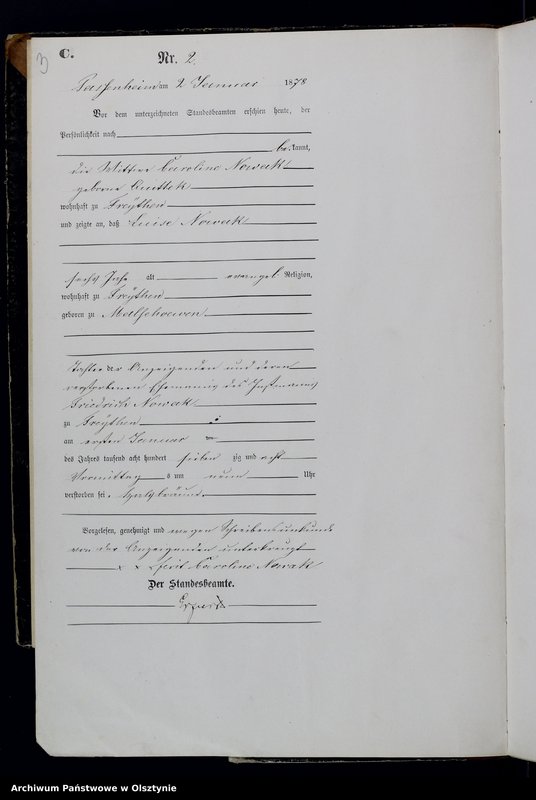 3
C.
Nr. 2.
Passenheim am 2 Januar 1878
Vor dem unterzeichneten Standesbeamten erschien heute, der
Persönlichkeit nach
bekannt,
die Wittwe Caroline Nowak
geborne
wohnhaft zu Freythen
und zeigte an, daß Luise Nowak
sechs Jahr alt evangel Religion,
wohnhaft zu Freythen
geboren zu Malschoewen
Tochter der Anzeigenden und deren
verstorbenen Ehemanns des Instmanns
Friedrich Nowak
zu Freythen
am ersten Januar
des Jahres tausend acht hundert sieben zig und acht
Vormittags um neun Uhr
verstorben sei.
Vorgelesen, genehmigt und wegen Schreibensunkunde
von der Anzeigenden unterkreuzt
x x x Caroline Nowak
Der Standesbeamte.
Archiwum Państwowe w Olsztynie